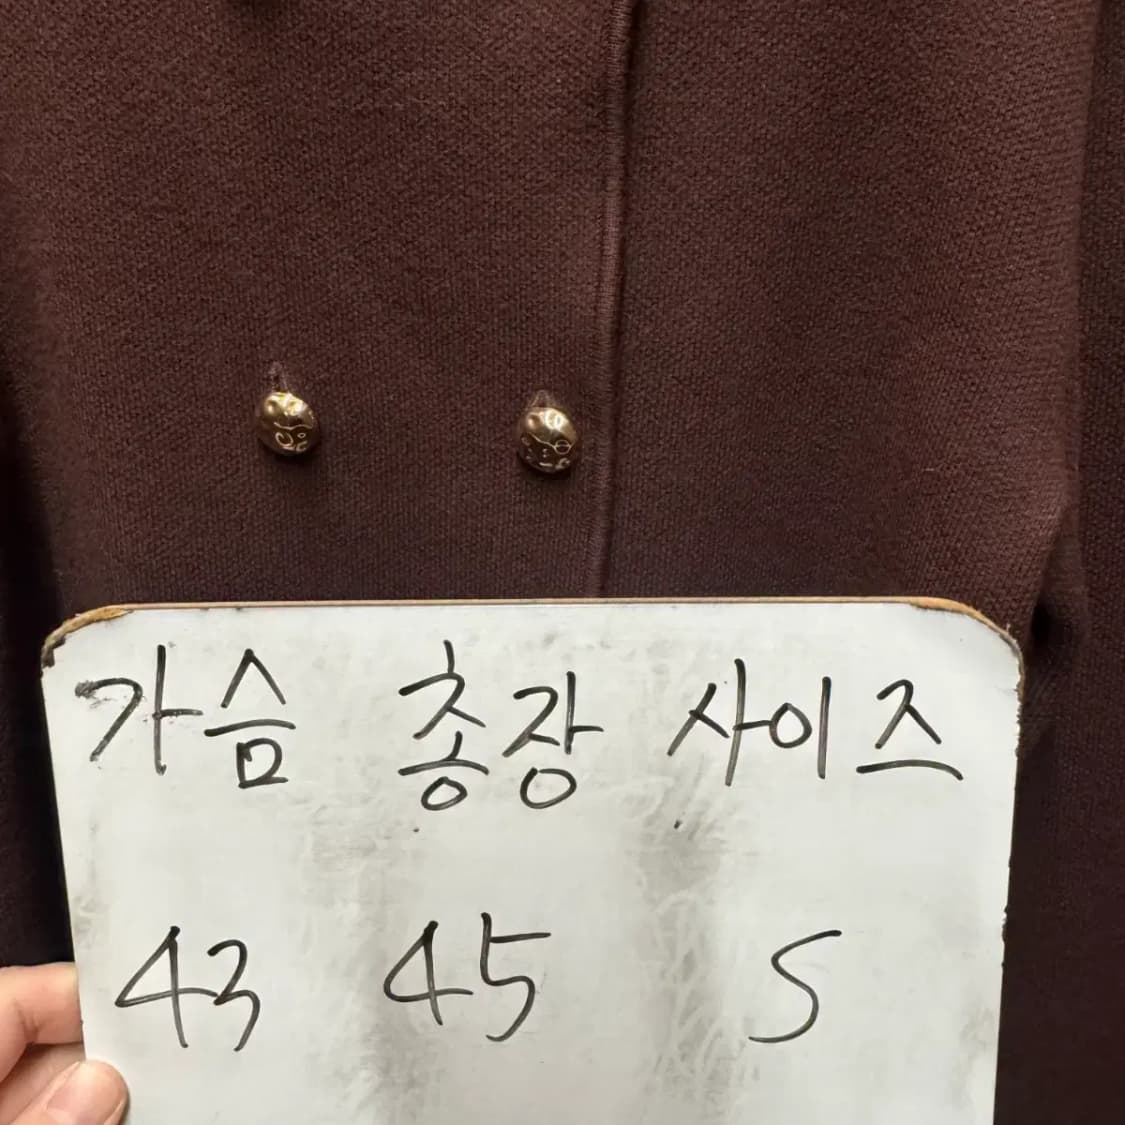 가슴 총장 사이즈
43 45 S